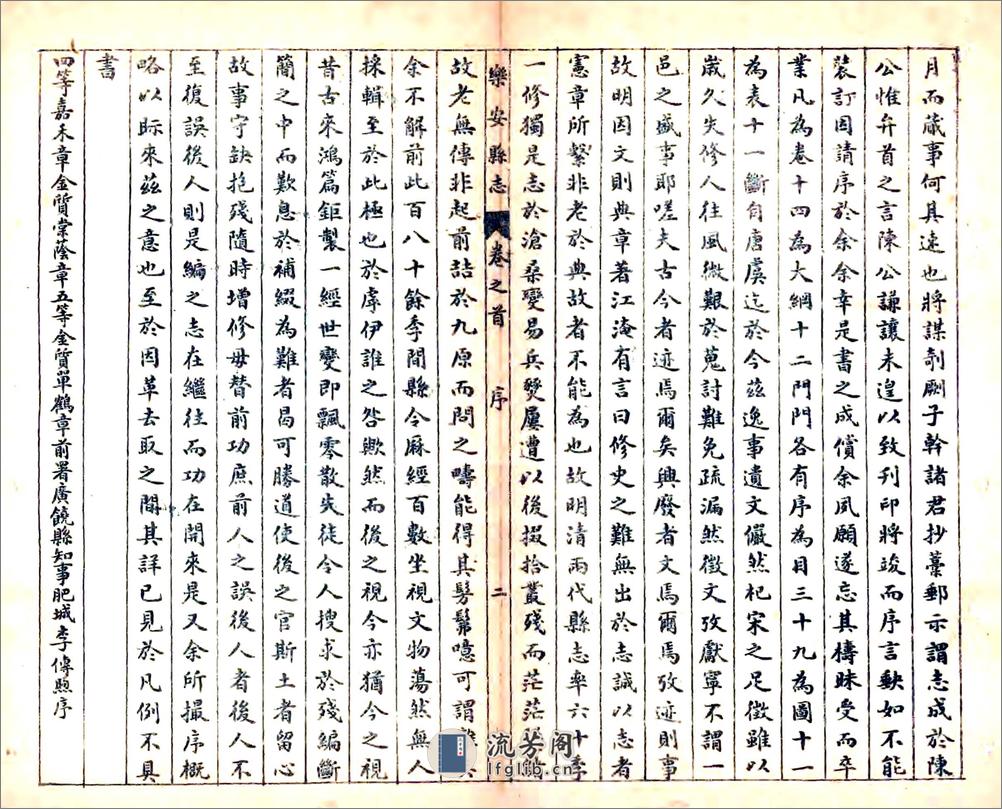 月而蕆事何其速也將謀剞劂子幹諸君抄藁郵示謂志成於陳
公惟弁首之言陳公謙讓未遑以致刊印將竣而序言缺如不能
裝訂因請序於余余幸是書之成償余夙願遂忘其檮昧受而卒
業凡為卷十四為大綱十二門門各有序為目三十九為圖十一
為表十一斷自唐虞迄於今茲逸事遺文儼然杞宋之足徵雖以
歲久失修人往風微艱於蒐討難免疏漏然徵文攷獻寧不謂一
邑之盛事耶嗟夫古今者迹焉爾矣興廢者文焉爾焉攷迹則事
故明因文則典章著江淹有言曰修史之難無出於志誠以志者
憲章所繫非老於典故者不能為也故明清兩代縣志率六十季
一修獨是志於滄桑變易兵燹屢遭以後掇拾叢殘而茫茫墜
樂安縣志 卷之首 序 二
故老無傳非起前喆於九原而問之疇能得其髣髴噫可謂難矣
余不解前此百八十餘季間縣令麻經百數坐視文物蕩然無人
採輯至於此極也於虖伊誰之咎歟然而後之視今亦猶今之視
昔古來鴻篇鉅製一經世變即飄零散失徒令人搜求於殘編斷
簡之中而歎息於補綴為難者曷可勝道使後之官斯土者留心
故事守缺抱殘隨時增修毋替前功庶前人之誤後人者後人不
至復誤後人則是編之志在繼往而功在開來是又余所撮序概
略以眎來茲之意也至於因革去取之間其詳已見於凡例不具
書
四等嘉禾章金質棠蔭章五等金質單鶴章前署廣饒縣知事肥城李傳煦序
流芳閣
lfglib.cn